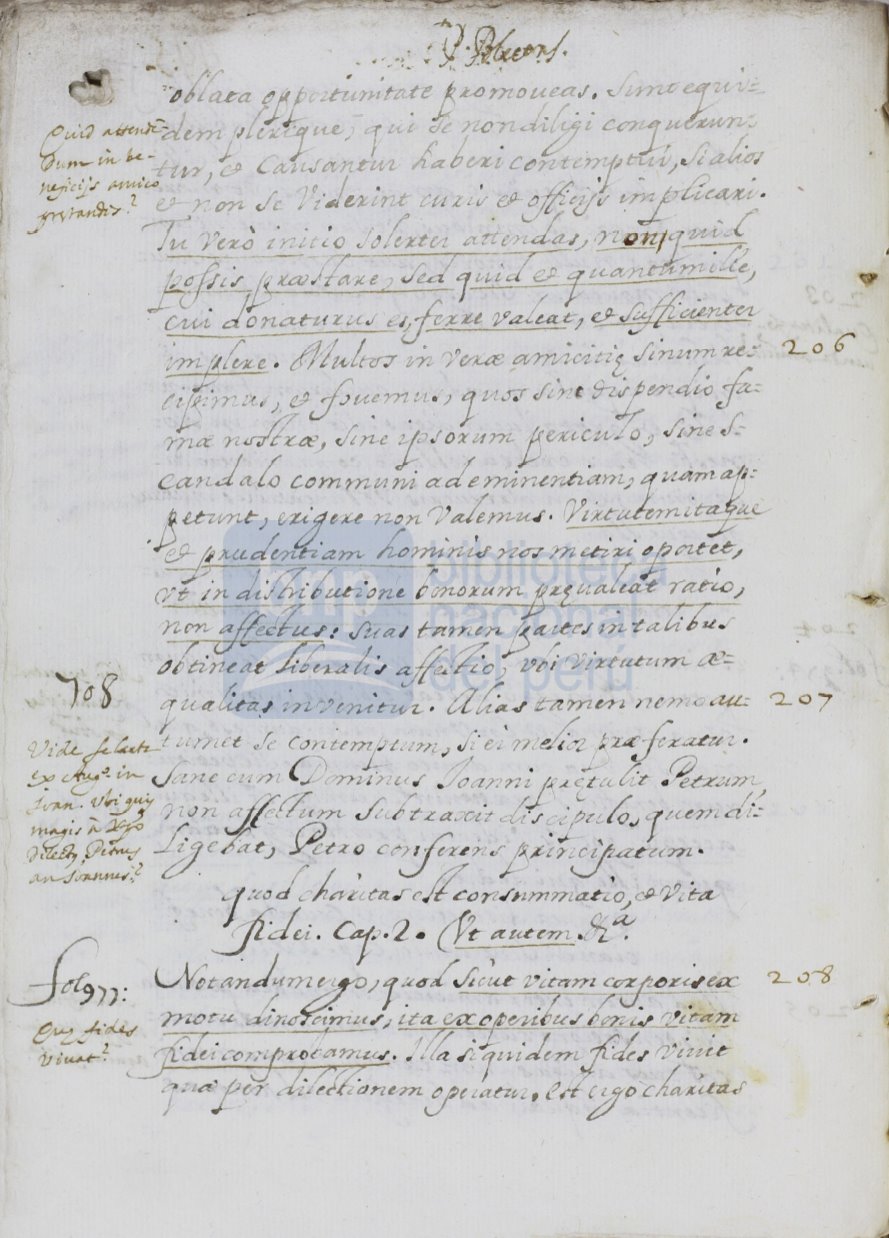 P. Blecens.
oblata opportunitate promoveas. Sunt equi=
dem plerique, qui se non diligi conquerun=
tur, et Causantur haberi contemptui, Si alios
et non se Viderint curis et officijs implicari.
Tu verò initio solerter attendas, non quid
possis præstare, sed quid et quantum ille,
cui donaturus es, ferre valeat, et sufficienter
implere. Multos in veræ amicitię sinum re=
cipimus, et fovemus, quos sine dispendio fa=
mæ nostræ, sine ipsorum periculo, sine s=
candalo communi ad eminentiam, quam ap=
petunt, erigere non Valemus. Virtutem itaque
et prudentiam hominis nos metiri oportet,
Vt in distributione bonorum pręvaleat ratio,
non affectus: suas tamen partes in talibus
obtineat liberalis affectio, vbi virtutum æ=
qualitas invenitur. Alias tamen nemo au=
tumet se contemptum, si ei melior præferatur.
Sane cum Dominus Joanni prętulit Petrum,
non affectum subtraxit discipulo, quem di=
Ligebat, Petro conferens principatum.
quod charitas est consummatio, et vita
fidei. Cap. 2. (Vt autem. &ª.
Notandum ergo, quod sicut vitam corporis ex
motu dinoscimus, ita ex operibus bonis vitam
fidei comprobamus. Illa siquidem fides vivit
quæ per dilectionem operatur. est ergo charitas
Quid attendē=
dum in be=
neficijs amico
prestandis?
708
Vide
ex Aug. in
Joan. Vbi quis
magis à Xpo
Dilectus, Petrus
an Joannes?
fol 977:
Quę fides
vivat?
206
207
208